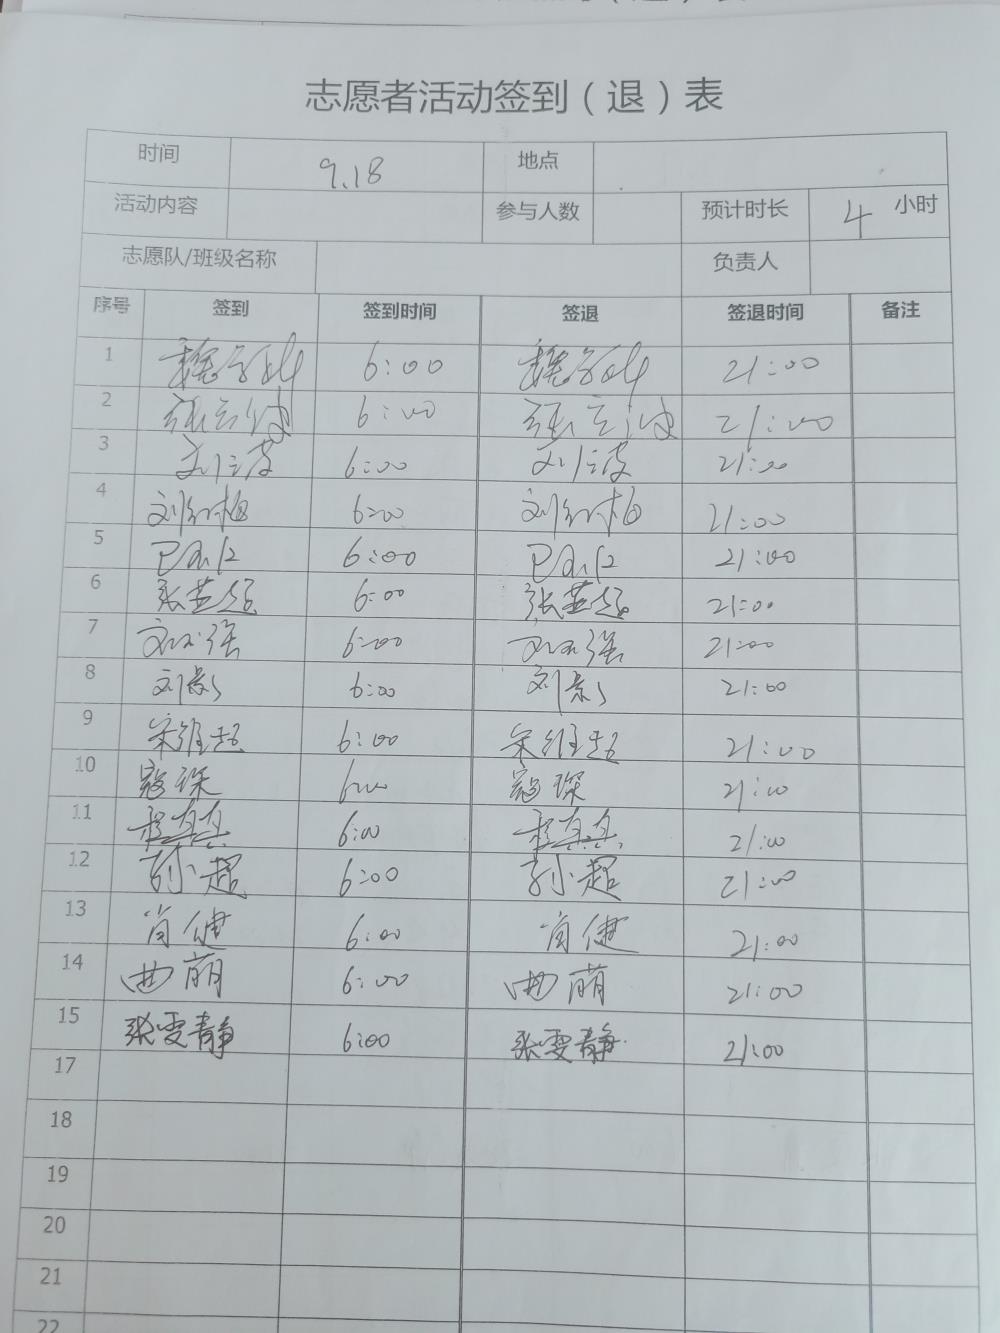 志愿者活动签到（退）表
时间 9.18 地点
活动内容 参与人数 预计时长 4 小时
志愿队/班级名称 负责人
序号 签到 签到时间 签退 签退时间 备注
1 6:00 21:00
2 6:00 21:00
3 6:00 21:00
4 刘红梅 6:00 刘红梅 21:00
5 6:00 21:00
6 6:00 21:00
7 6:00 21:00
8 刘影 6:00 刘影 21:00
9 宋维超 6:00 宋维超 21:00
10 寇琛 6:00 寇琛 21:00
11 程真真 6:00 程真真 21:00
12 孙超 6:00 孙超 21:00
13 肖健 6:00 肖健 21:00
14 曲萌 6:00 曲萌 21:00
15 张雯静 6:00 张雯静 21:00
17
18
19
20
21
22